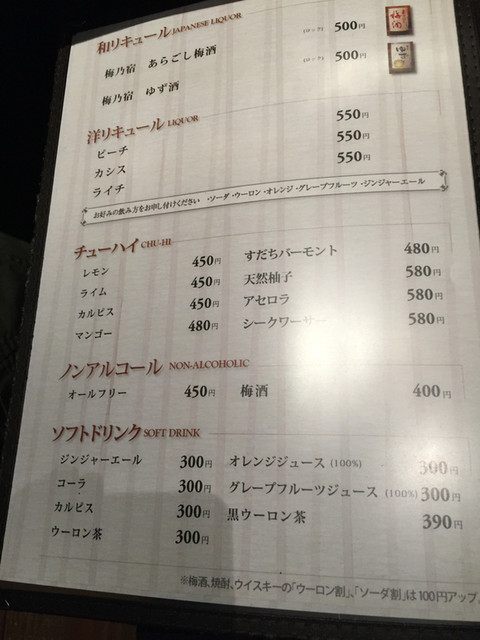 和リキュール JAPANESE LIQUOR
梅乃宿 あらごし梅酒 (ロック) 500円
梅乃宿 ゆず酒 (ロック) 500円
梅酒
ゆず
洋リキュール LIQUOR
ピーチ 550円
カシス 550円
ライチ 550円
お好みの飲み方をお申し付けください ・ソーダ・ウーロン・オレンジ・グレープフルーツ・ジンジャーエール
チューハイ CHU-HI
レモン 450円 すだちバーモント 480円
ライム 450円 天然柚子 580円
カルピス 450円 アセロラ 580円
マンゴー 480円 シークワーサー 580円
ノンアルコール NON-ALCOHOLIC
オールフリー 450円 梅酒 400円
ソフトドリンク SOFT DRINK
ジンジャーエール 300円 オレンジジュース (100%) 300円
コーラ 300円 グレープフルーツジュース (100%) 300円
カルピス 300円 黒ウーロン茶 390円
ウーロン茶 300円
※梅酒、焼酎、ウイスキーの「ウーロン割」、「ソーダ割」は100円アップ